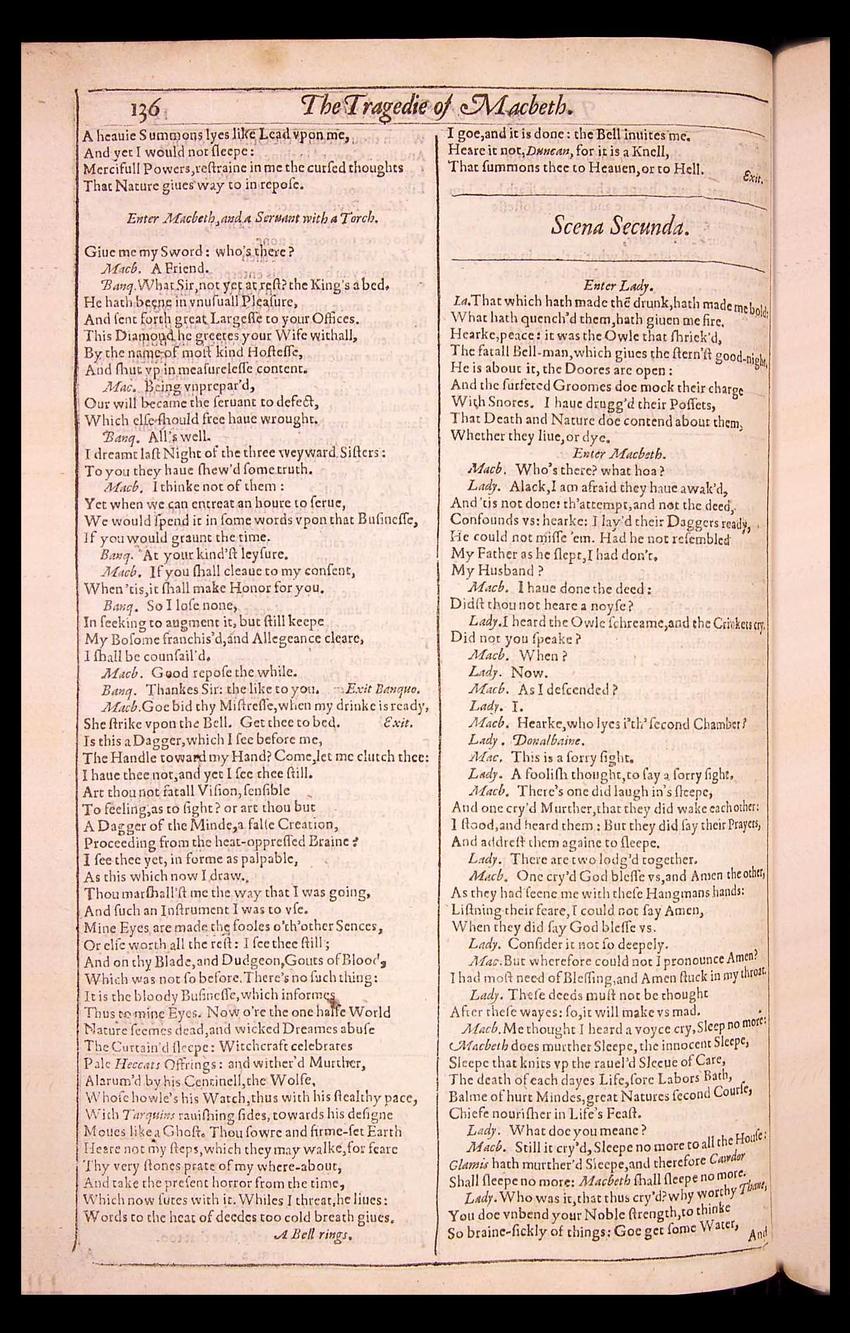 136
The Tragedie of Macbeth.
A heauie Summons lyes like Lead vpon me,
And yet I would not sleepe:
Mercifull Powers, restraine in me the cursed thoughts
That Nature giues way to in repose.
Enter Macbeth, and a Seruant with a Torch.
Giue me my Sword: who's there?
Macb. A Friend.
Banq. What Sir, not yet at rest? the King's a bed.
He hath beene in vnusuall Pleasure,
And sent forth great Largesse to your Offices.
This Diamond he greetes your Wife withall,
By the name of most kind Hostesse,
And shut vp in measurelesse content.
Mac. Being vnprepar'd,
Our will became the seruant to defect,
Which else should free haue wrought.
Banq. All's well.
I dreamt last Night of the three weyward Sisters:
To you they haue shew'd some truth.
Macb. I thinke not of them:
Yet when we can entreat an houre to serue,
We would spend it in some words vpon that Businesse,
If you would graunt the time.
Banq. At your kind'st leysure.
Macb. If you shall cleaue to my consent,
When 'tis, it shall make Honor for you.
Banq. So I lose none,
In seeking to augment it, but still keepe
My Bosome franchis'd, and Allegeance cleare,
I shall be counsail'd.
Macb. Good repose the while.
Banq. Thankes Sir: the like to you. Exit Banquo.
Macb. Goe bid thy Mistresse, when my drinke is ready,
She strike vpon the Bell. Get thee to bed. Exit.
Is this a Dagger, which I see before me,
The Handle toward my Hand? Come, let me clutch thee:
I haue thee not, and yet I see thee still.
Art thou not fatall Vision, sensible
To feeling, as to sight? or art thou but
A Dagger of the Minde, a false Creation,
Proceeding from the heat-oppressed Braine?
I see thee yet, in forme as palpable,
As this which now I draw.
Thou marshall'st me the way that I was going,
And such an Instrument I was to vse.
Mine Eyes are made the fooles o'th'other Sences,
Or else worth all the rest: I see thee still;
And on thy Blade, and Dudgeon, Gouts of Blood,
Which was not so before. There's no such thing:
It is the bloody Businesse, which informes
Thus to mine Eyes. Now o're the one halfe World
Nature seemes dead, and wicked Dreames abuse
The Curtain'd sleepe: Witchcraft celebrates
Pale Heccats Offrings: and wither'd Murther,
Alarum'd by his Centinell, the Wolfe,
Whose howle's his Watch, thus with his stealthy pace,
With Tarquins rauishing sides, towards his designe
Moues like a Ghost. Thou sowre and firme-set Earth
Heare not my steps, which they may walke, for feare
Thy very stones prate of my where-about,
And take the present horror from the time,
Which now sutes with it. Whiles I threat, he liues:
Words to the heat of deedes too cold breath giues.
A Bell rings.
I goe, and it is done: the Bell inuites me.
Heare it not, Duncan, for it is a Knell,
That summons thee to Heauen, or to Hell. Exit.
Scena Secunda.
Enter Lady.
La. That which hath made thē drunk, hath made me bold:
What hath quench'd them, hath giuen me fire.
Hearke, peace: it was the Owle that shriek'd,
The fatall Bell-man, which giues the stern'st good-night.
He is about it, the Doores are open:
And the surfeted Groomes doe mock their charge
With Snores. I haue drugg'd their Possets,
That Death and Nature doe contend about them,
Whether they liue, or dye.
Enter Macbeth.
Macb. Who's there? what hoa?
Lady. Alack, I am afraid they haue awak'd,
And 'tis not done: th'attempt, and not the deed,
Confounds vs: hearke: I lay'd their Daggers ready,
He could not misse 'em. Had he not resembled
My Father as he slept, I had don't.
My Husband?
Macb. I haue done the deed:
Didst thou not heare a noyse?
Lady. I heard the Owle schreame, and the Crickets cry.
Did not you speake?
Macb. When?
Lady. Now.
Macb. As I descended?
Lady. I.
Macb. Hearke, who lyes i'th' second Chamber?
Lady. Donalbaine.
Mac. This is a sorry sight.
Lady. A foolish thought, to say a sorry sight.
Macb. There's one did laugh in's sleepe,
And one cry'd Murther, that they did wake each other:
I stood, and heard them: But they did say their Prayers,
And addrest them againe to sleepe.
Lady. There are two lodg'd together.
Macb. One cry'd God blesse vs, and Amen the other,
As they had seene me with these Hangmans hands:
Listning their feare, I could not say Amen,
When they did say God blesse vs.
Lady. Consider it not so deepely.
Mac. But wherefore could not I pronounce Amen?
I had most need of Blessing, and Amen stuck in my throat.
Lady. These deeds must not be thought
After these wayes: so, it will make vs mad.
Macb. Me thought I heard a voyce cry, Sleep no more:
Macbeth does murther Sleepe, the innocent Sleepe,
Sleepe that knits vp the rauel'd Sleeue of Care,
The death of each dayes Life, sore Labors Bath,
Balme of hurt Mindes, great Natures second Course,
Chiefe nourisher in Life's Feast.
Lady. What doe you meane?
Macb. Still it cry'd, Sleepe no more to all the House:
Glamis hath murther'd Sleepe, and therefore Cawdor
Shall sleepe no more: Macbeth shall sleepe no more.
Lady. Who was it, that thus cry'd? why worthy Thane,
You doe vnbend your Noble strength, to thinke
So braine-sickly of things: Goe get some Water,
And